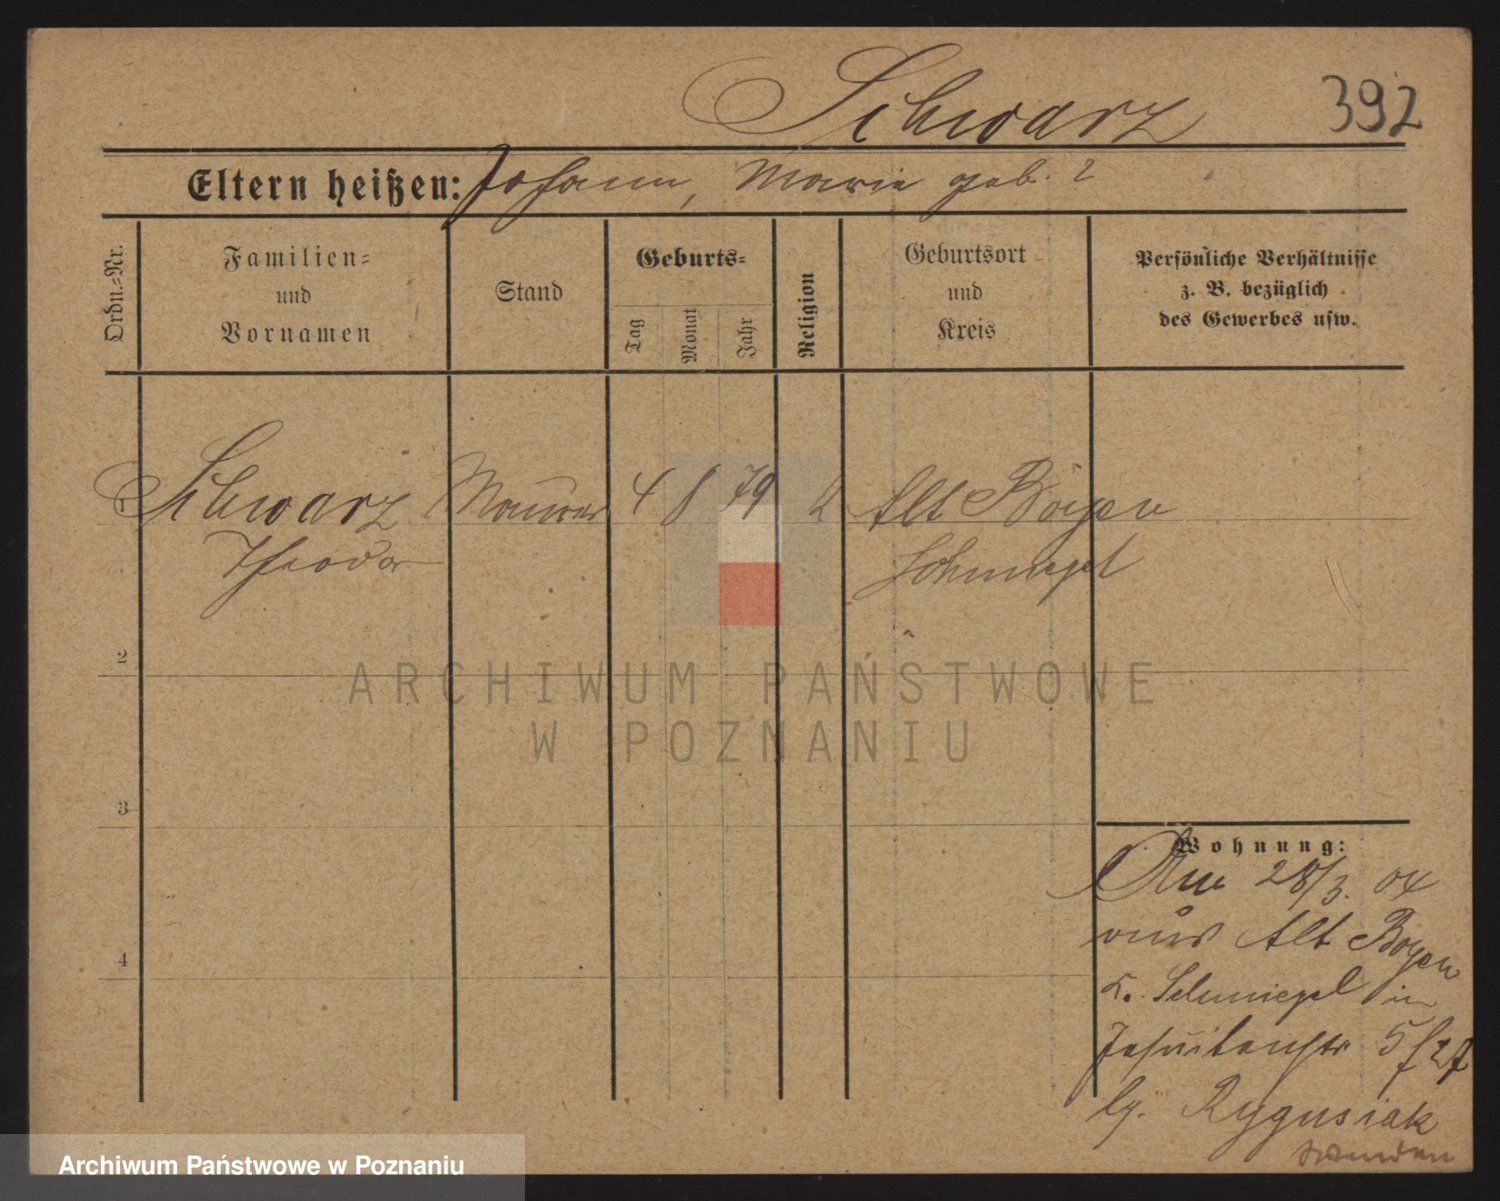 Schwarz 392
Eltern heißen: Johann, Marie geb. ?
Ordn.-Nr.
Familien-
und
Vornamen
Stand
Geburts-
Tag
Monat
Jahr
Religion
Geburtsort
und
Kreis
Persönliche Verhältnisse
z. B. bezüglich
des Gewerbes usw.
1 Schwarz Maurer 4 8 79 k Alt Boyen
Theodor Schmiegel
2
ARCHIWUM PAŃSTWOWE
W POZNANIU
3
Wohnung:
Am 28/3. 04
aus Alt Boyen
K. Schmiegel in
Jesuitenstr 5
bg. Rygusiak
4
Archiwum Państwowe w Poznaniu